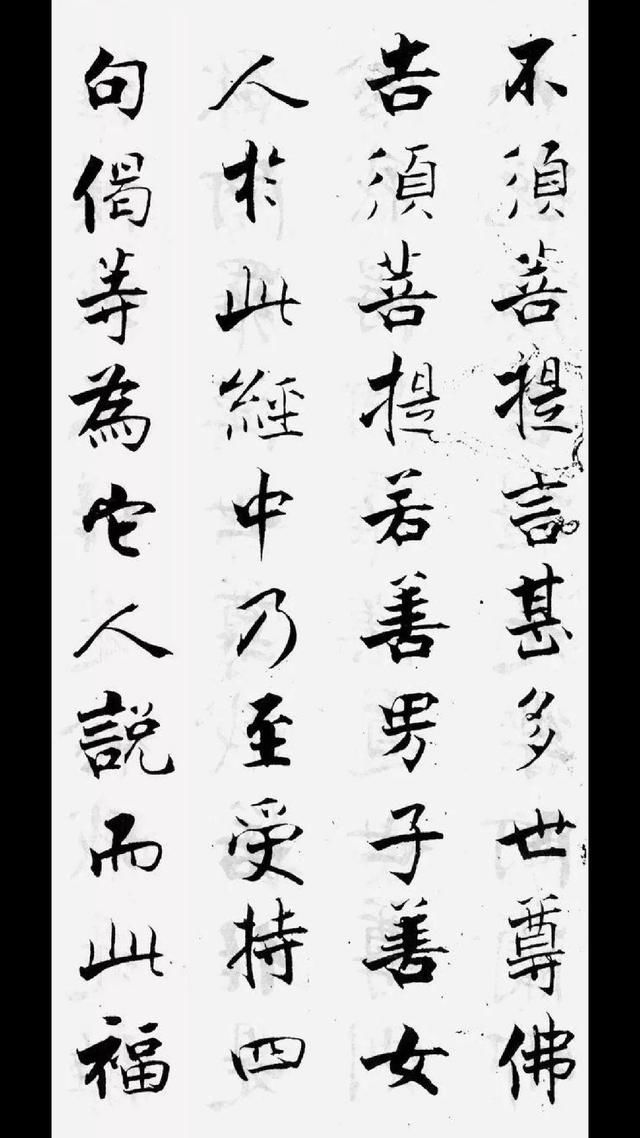 不須菩提言甚多世尊佛
告須菩提若善男子善女
人於此經中乃至受持四
句偈等為它人説而此福